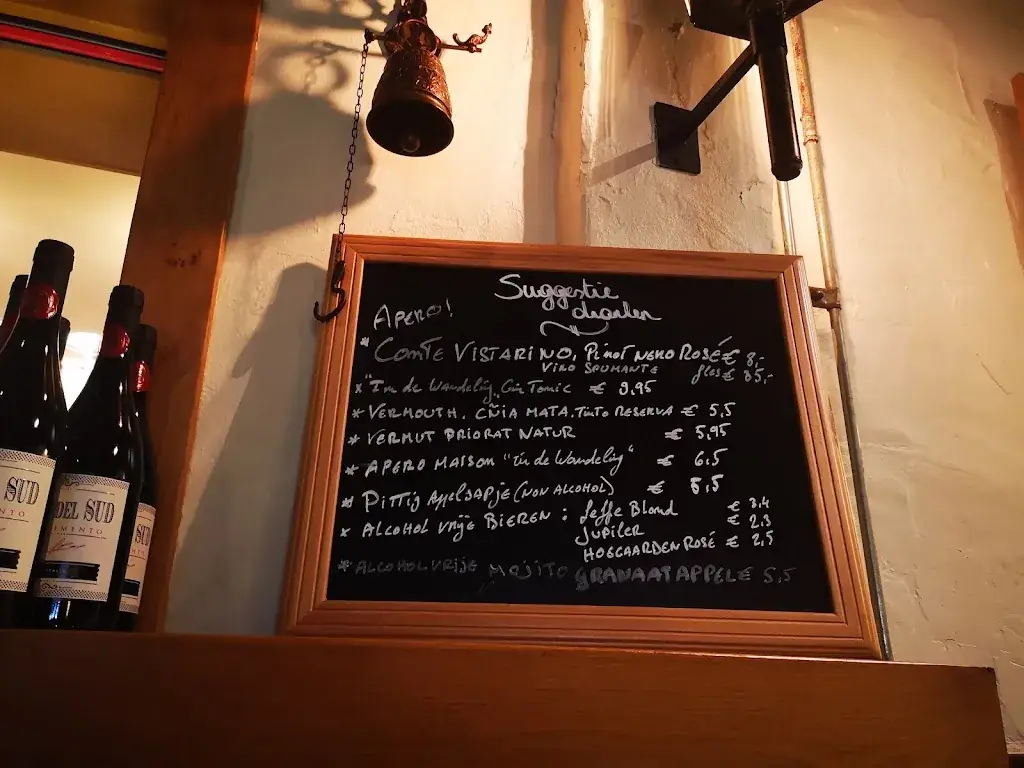 Suggestie
dranken
APERO!
* COMTE VISTARINO, PINOT NERO ROSÉ € 8,-
VINO SPUMANTE fles € 35,-
* "In de Wandeling" Gin Tonic € 9,95
* VERMOUTH. CÑIA MATA. TINTO RESERVA € 5,5
* VERMUT PRIORAT NATUR € 5,95
* APERO MAISON "in de Wandeling" € 6,5
* PITTIG APPELSAPJE (NON ALCOHOL) € 5,5
* ALCOHOL VRIJE BIEREN : Leffe Blond € 3,4
Jupiler € 2,3
HOEGAARDEN ROSÉ € 2,5
* ALCOHOLVRIJE MOJITO GRANAATAPPEL € 5,5
SUD
DEL SUD